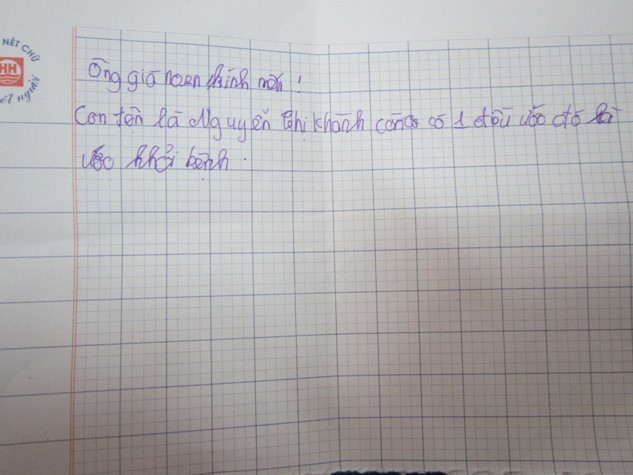 NÉT CHỮ
HH
NẾT người
Ông già noen kính mến !
Con tên là Nguyễn Thị Khánh có 1 điều ước đó là
ước khỏi bệnh.